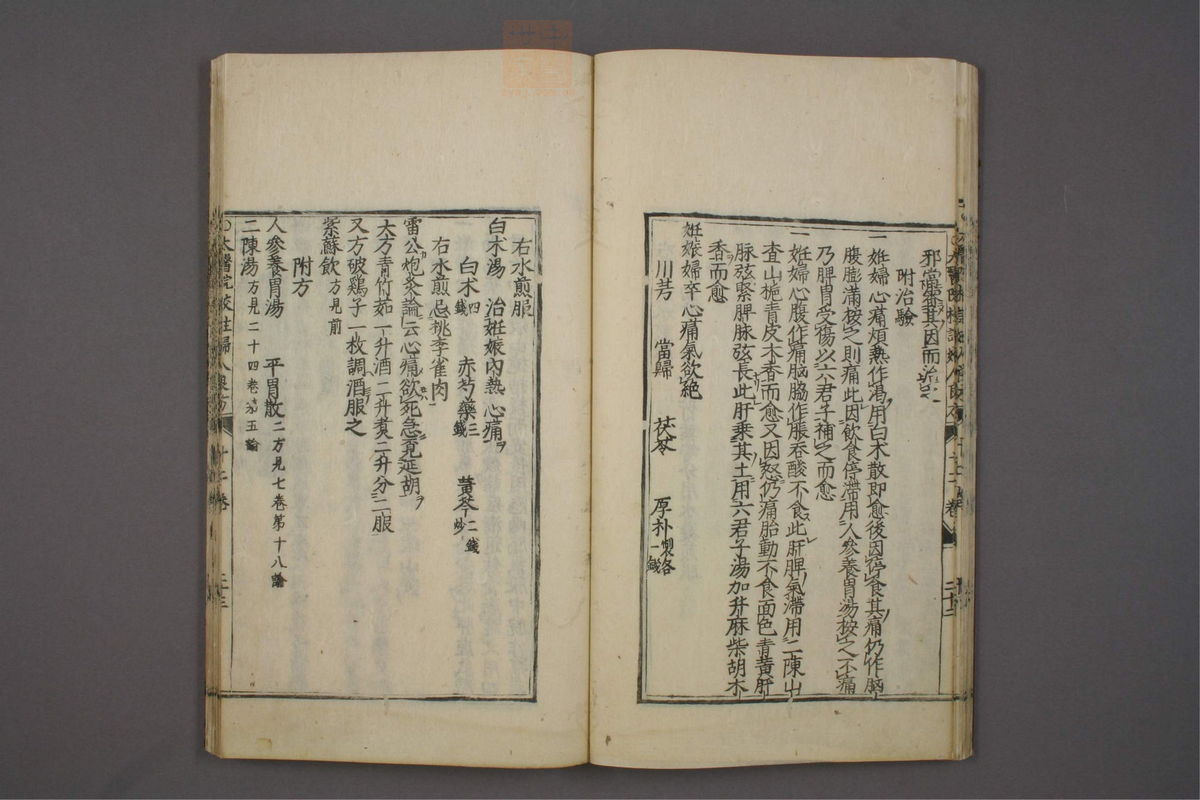 邪當審其因而治之
附治驗
一妊婦心痛煩熱作渴用白朮散即愈後因停食其痛仍作胸
腹膨滿按之則痛此因飲食停滯用人參養胃湯按之不痛
乃脾胃受傷以六君子補之而愈
一妊婦心腹作痛胸脇作脹吞酸不食此肝脾氣滯用二陳山
查山梔青皮木香而愈又因怒仍痛胎動不食面色青黃肝
脉弦緊脾脉弦長此肝乘其土用六君子湯加升麻柴胡木
香而愈
妊娠婦卒心痛氣欲絕
川芎 當歸 茯苓 厚朴製各一錢
右水煎服
白朮湯 治妊娠內熱心痛
白朮四錢 赤芍藥三錢 黃芩二錢炒
右水煎忌桃李雀肉
雷公炮灸論云心痛欲死急覓延胡
大方青竹茹一升酒二升煑二升分二服
又方破鶏子一枚調酒服之
紫蘇飲方見前
附方
人參養胃湯 平胃散二方見七卷第十八論
二陳湯方見二十四卷第五論
太醫院校註婦人良方 十二卷 二十三